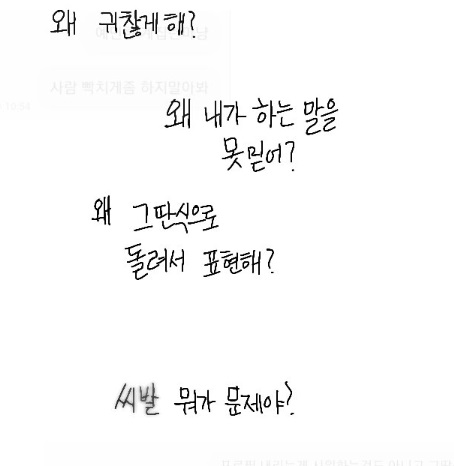 왜 귀찮게 해?
사람 빡치게좀 하지말아봐
왜 내가 하는 말을
못 믿어?
왜 그딴식으로
돌려서 표현해?
씨발 뭐가 문제야?